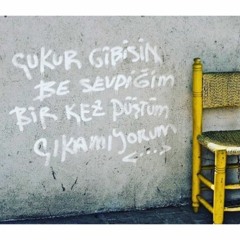 ÇUKUR GİBİSİN
BE SEVDİĞİM
BİR KEZ DÜŞTÜM
ÇIKAMIYORUM
<...>